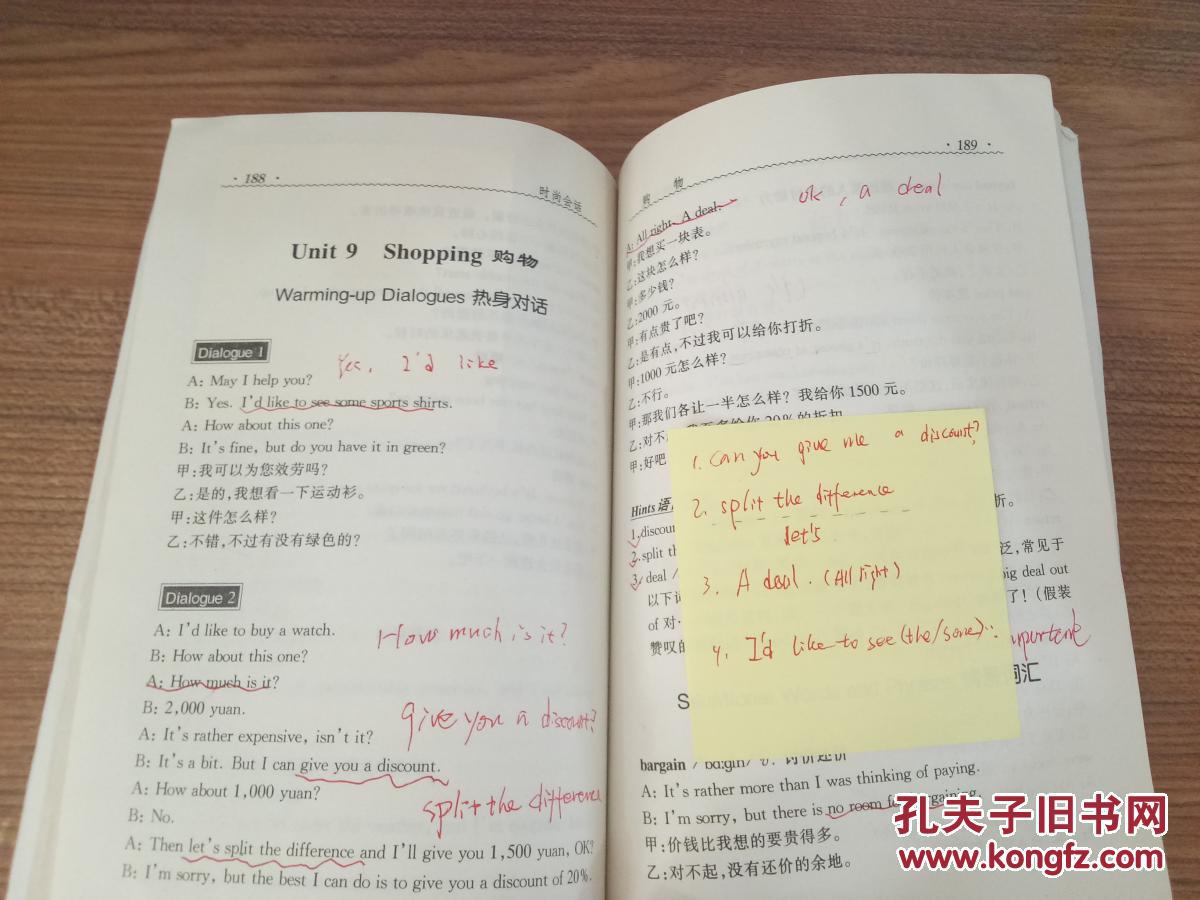 · 188 ·
时尚会话
Unit 9 Shopping 购物
Warming-up Dialogues 热身对话
Dialogue 1
Yes, I'd like
A: May I help you?
B: Yes. I'd like to see some sports shirts.
A: How about this one?
B: It's fine, but do you have it in green?
甲:我可以为您效劳吗?
乙:是的,我想看一下运动衫。
甲:这件怎么样?
乙:不错,不过有没有绿色的?
Dialogue 2
A: I'd like to buy a watch.
How much is it?
B: How about this one?
A: How much is it?
B: 2,000 yuan.
give you a discount?
A: It's rather expensive, isn't it?
B: It's a bit. But I can give you a discount.
A: How about 1,000 yuan?
split the difference
B: No.
A: Then let's split the difference and I'll give you 1,500 yuan, OK?
B: I'm sorry, but the best I can do is to give you a discount of 20%.
购 物
· 189 ·
A: All right. A deal.
ok, a deal
甲:我想买一块表。
乙:这块怎么样?
甲:多少钱?
乙:2000 元。
甲:有点贵了吧?
乙:是有点,不过我可以给你打折。
甲:1000 元怎么样?
乙:不行。
甲:那我们各让一半怎么样? 我给你 1500 元。
乙:对不
20%的折扣
甲:好吧
1. can you give me a discount?
2. split the difference
let's
3. A deal. (All right)
4. I'd like to see (the/some)...
Hints 语
折。
1.
2. split th
3. deal /
泛,常见于
以下
big deal out
of 对
了!(假装
赞叹的
词汇
bargain
讨价还价
A: It's rather more than I was thinking of paying.
B: I'm sorry, but there is no room for bargaining.
甲:价钱比我想的要贵得多。
乙:对不起,没有还价的余地。
孔夫子旧书网
www.kongfz.com